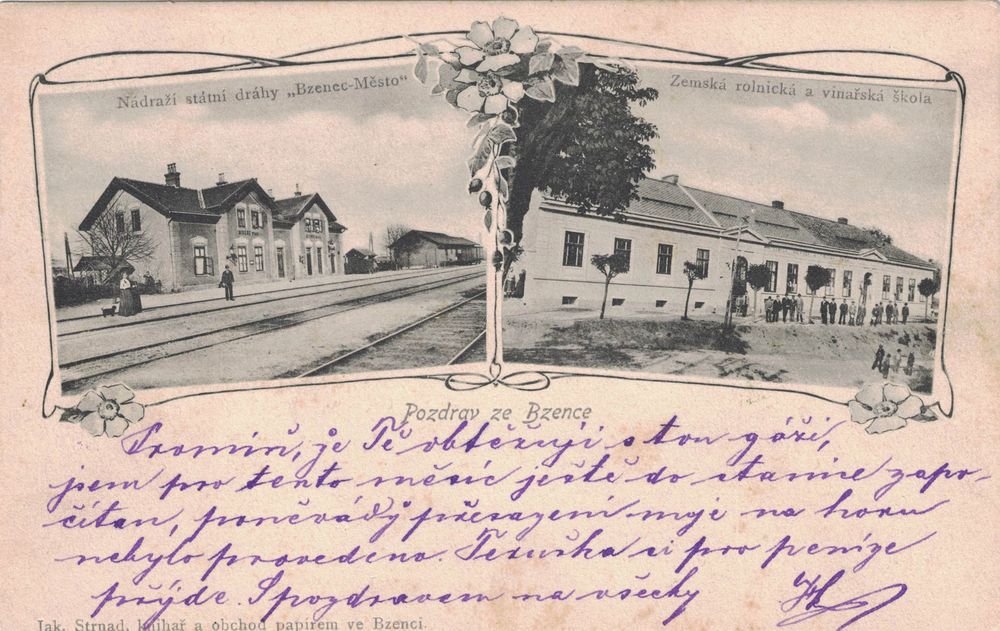 Nádraží státní dráhy „Bzenec-Město“
Zemská rolnická a vinařská škola
Pozdrav ze Bzence
Promiň, je Tě obtěžuji s tou gáží,
jsem pro tento měsíc ještě do stanice zapo-
čítan, poněvádž přesazení moje na horu
nebylo provedeno. Teruška si pro peníze
přijde. S pozdravem na všecky
Jak. Strnad, knihař a obchod papírem ve Bzenci.